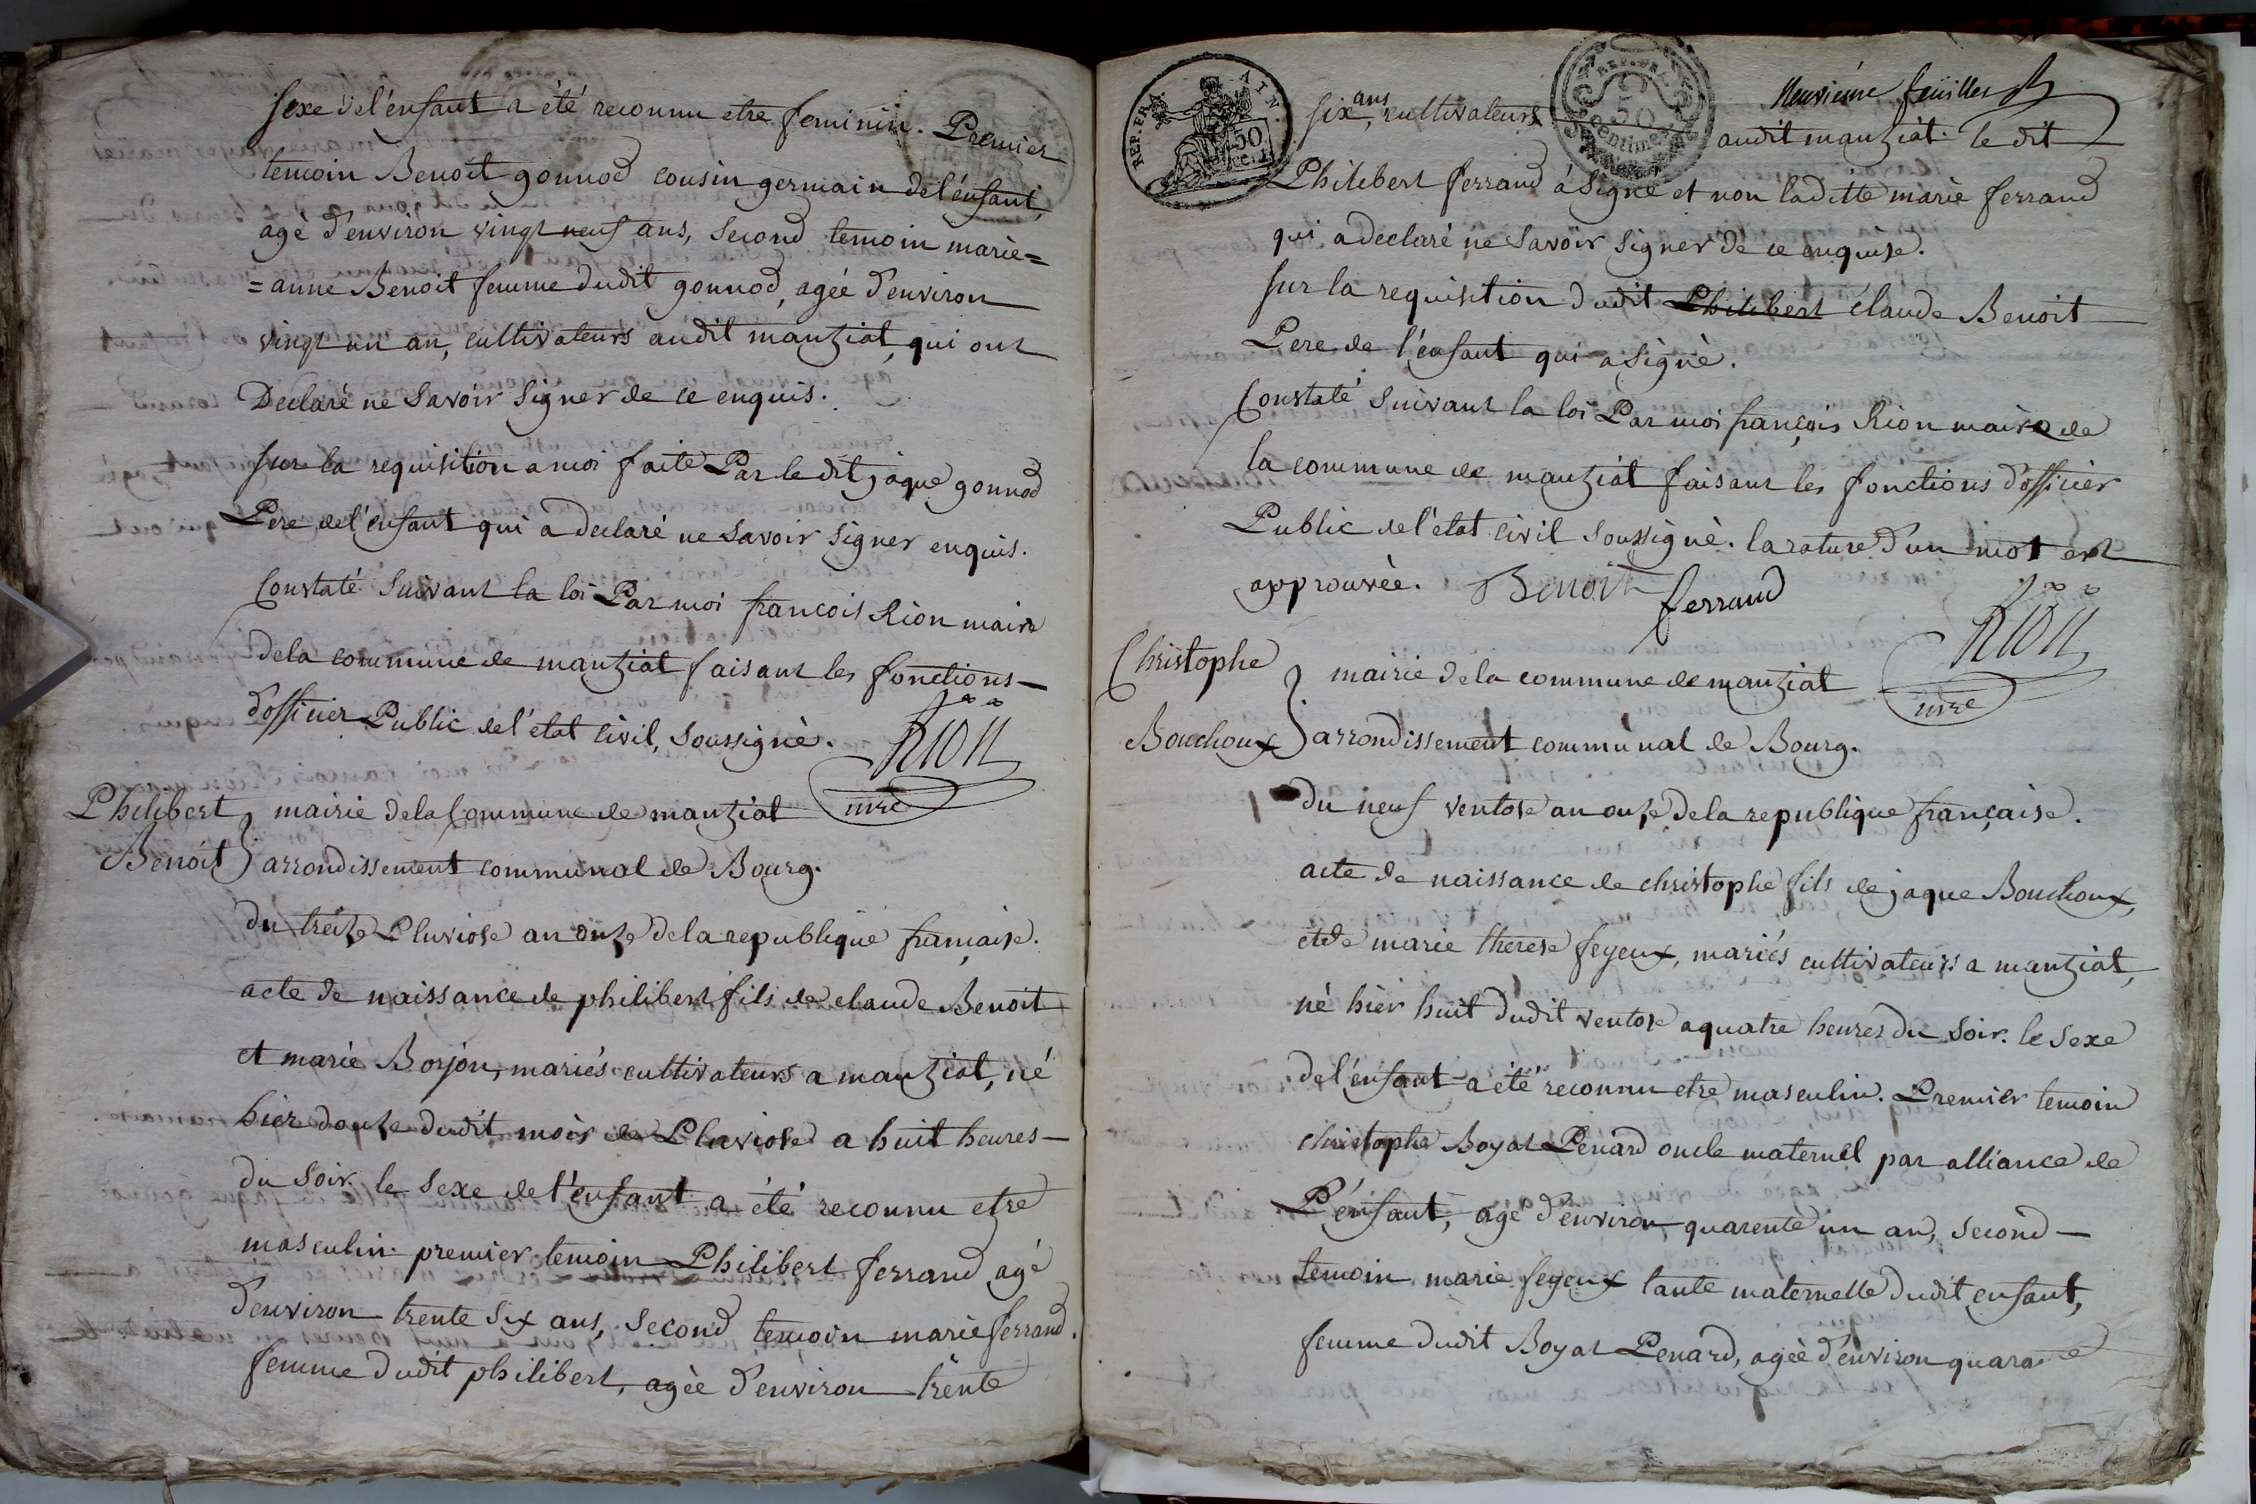 sexe de l'enfant a été reconnu etre feminin. Premier
temoin Benoit gonnod cousin germain de l'enfant,
agé d'environ vingt neuf ans, second temoin marie=
=anne Benoit femme dudit gonnod, ageé d'environ
vingt un an, cultivateurs audit mantziat, qui ont
Declaré ne savoir signer de ce enquis.
sur la requisition a moi faite Par le dit jaque gonnod
Pere de l'enfant qui a declaré ne savoir signer enquis.
Constaté suivant la loi Par moi francois Rion maire
de la commune de mantziat faisant les fonctions
d'officier Public de l'état civil, soussigné.
Rion
mre
Philibert
Benoit
mairie de la Commune de mantziat
arrondissement communal de Bourg.
du treize Pluviose an onze de la republique française.
acte de naissance de philibert fils de claude Benoit
et marie Borjon, mariés cultivateurs a mantziat, né
hier douze dudit mois de Pluviose a huit heures
du soir. le sexe de l'enfant a été reconnu etre
masculin. premier temoin Philibert ferrand agé
d'environ trente six ans, second temoin marie ferrand.
femme dudit philibert, ageè d'environ trente
REP. FRA. AIN.
50 cent.
REP. FRA.
50
centimes
Neuvième feuillet
six ans, cultivateurs audit mantziat. le dit
Philibert ferrand á signé et non laditte marie ferrand
qui a declaré ne savoir signer de ce enquise.
sur la requisition dudit Philibert claude Benoit
Pere de l'enfant qui a signè.
Constaté suivant la loi Par moi françois Rion maire de
la commune de mantziat faisant les fonctions d'officier
Public de l'etat civil soussignè. la rature d'un mot est
approuvée. Benoit ferrand
Rion
mre
Christophe
Bouchoux
mairie de la commune de mantziat
arrondissement communal de Bourg.
du neuf ventose an onze de la republique française.
acte de naissance de christophe fils de jaque Bouchoux,
et de marie therese feyeux, mariés cultivateurs a mantziat,
né hièr huit dudit ventose a quatre heures du soir. le sexe
de l'enfant a été reconnu etre masculin. Premier temoin
christophe Boyat Penard oncle maternel par alliance de
L'enfant, agé d'environ quarente un an, second
temoin marie feyeux tante maternelle dudit enfant,
femme dudit Boyat Penard, ageè d'environ quarante